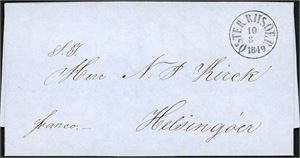 ØSTER-RIISØER
10
8
1849
S. T.
Herr N P Kirck
franco.—
Helsingöer